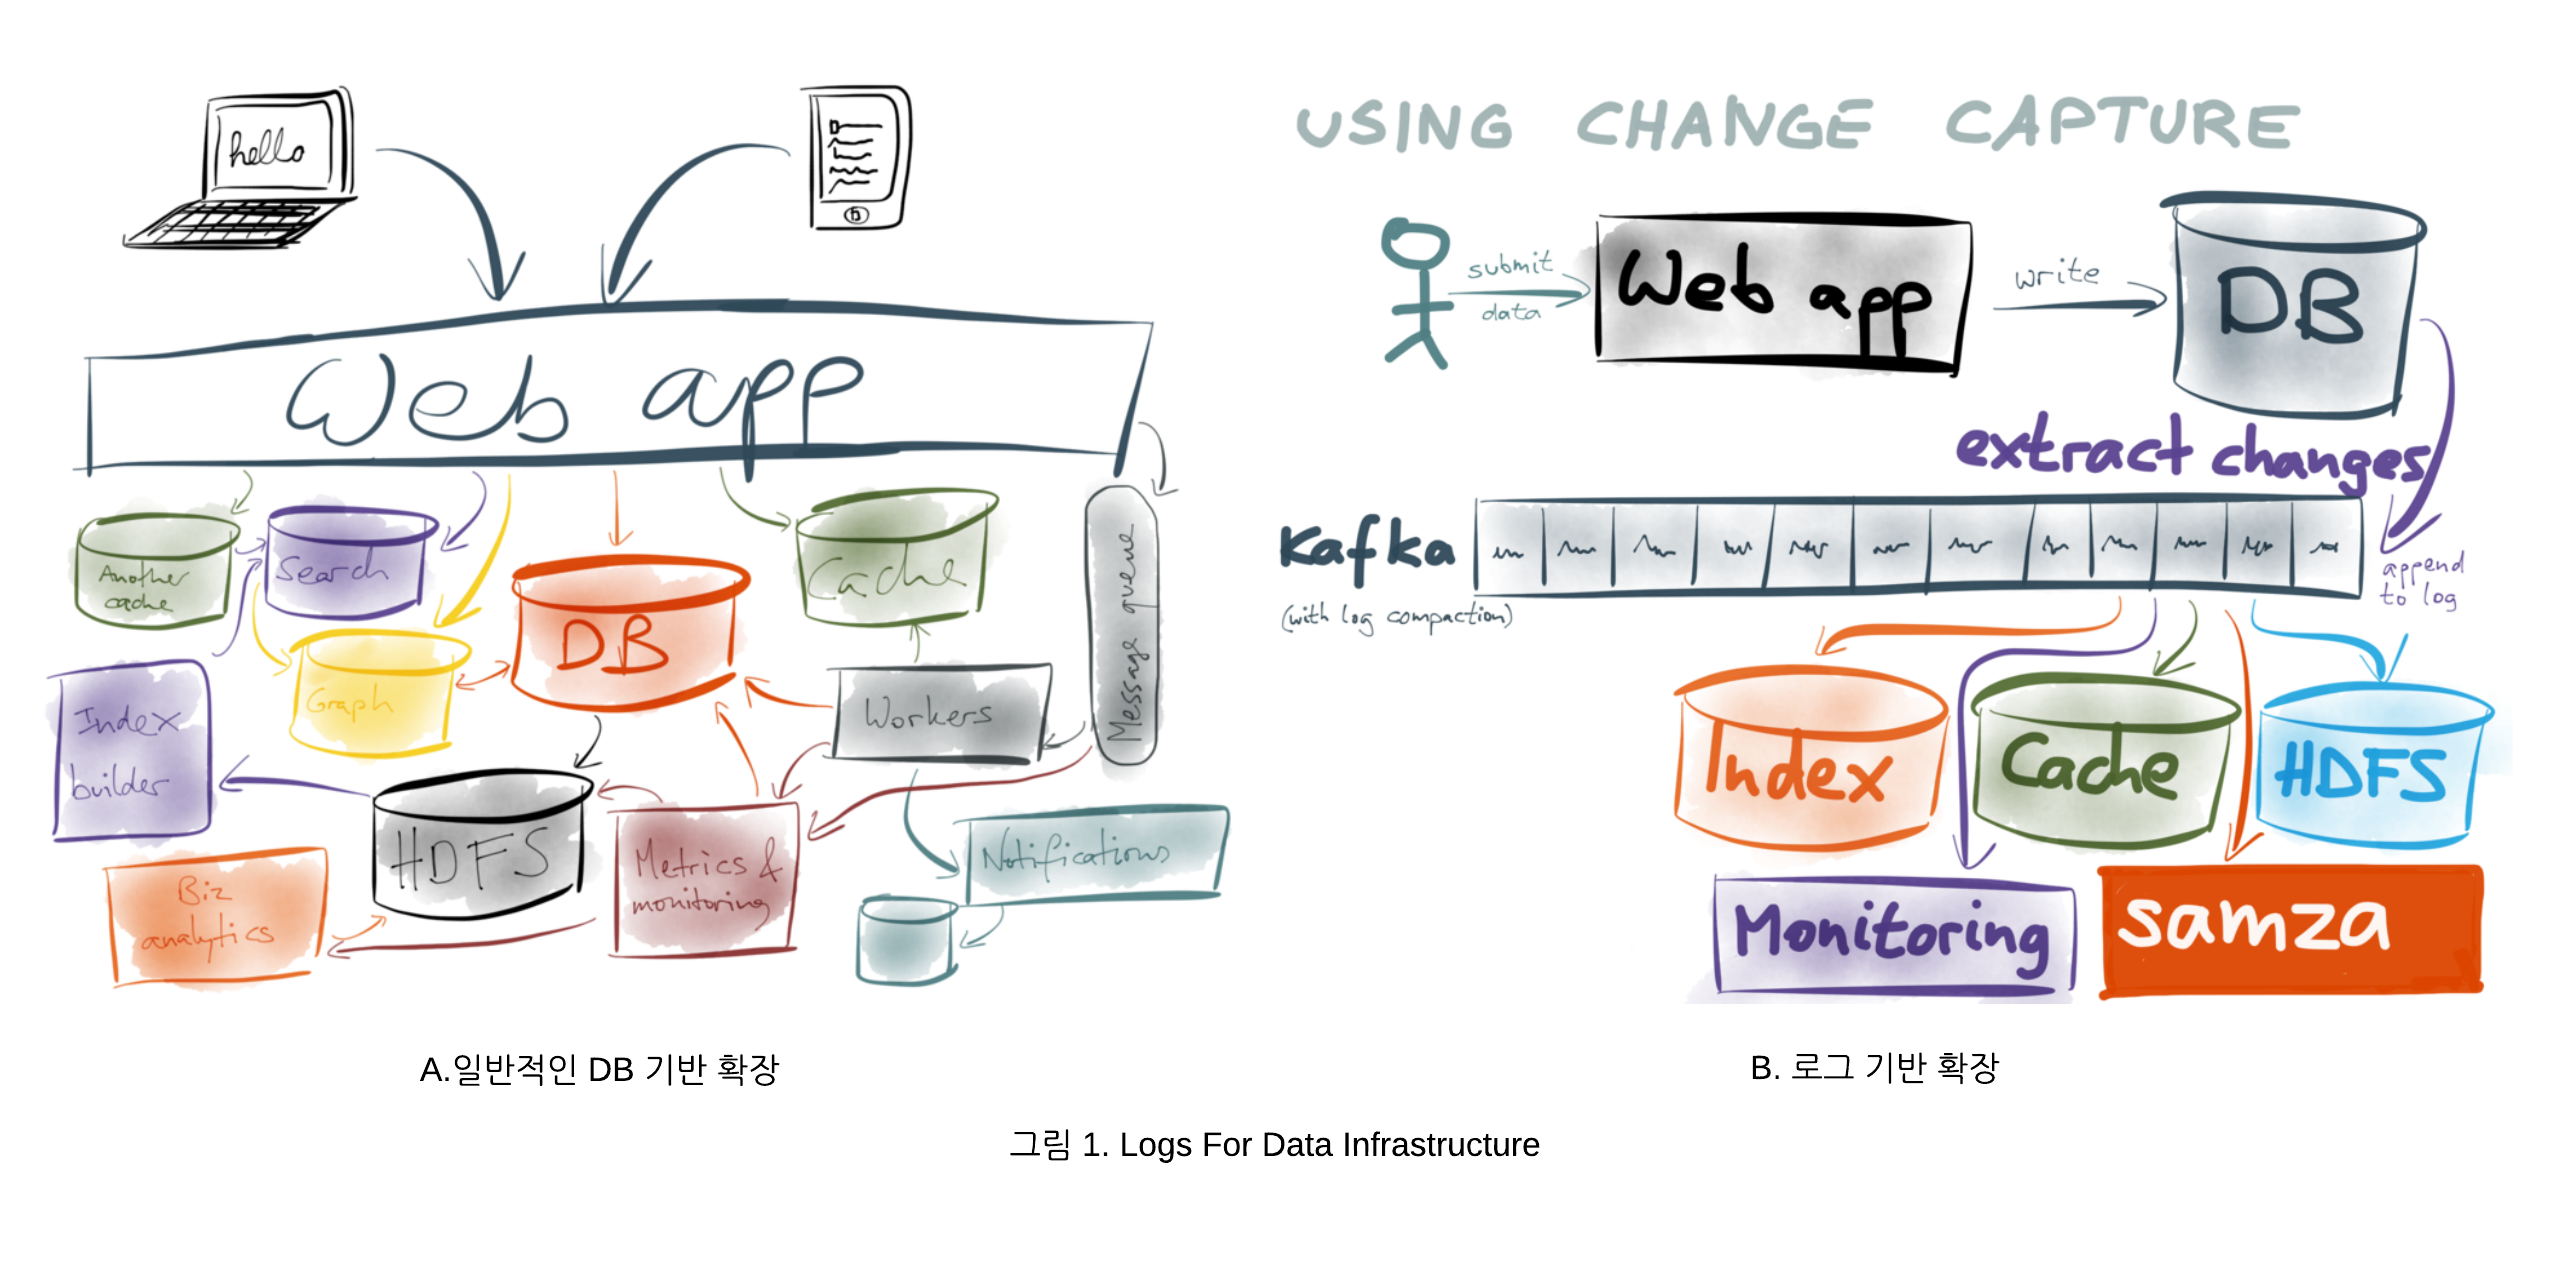 hello
Web app
Another
cache
Search
Cache
DB
Graph
Message queue
Index
builder
Workers
HDFS
Metrics &
monitoring
Notifications
Biz
analytics
A.일반적인 DB 기반 확장
USING CHANGE CAPTURE
submit
data
Web app
write
DB
extract changes
Kafka
(with log compaction)
append
to log
Index
Cache
HDFS
Monitoring
samza
B. 로그 기반 확장
그림 1. Logs For Data Infrastructure